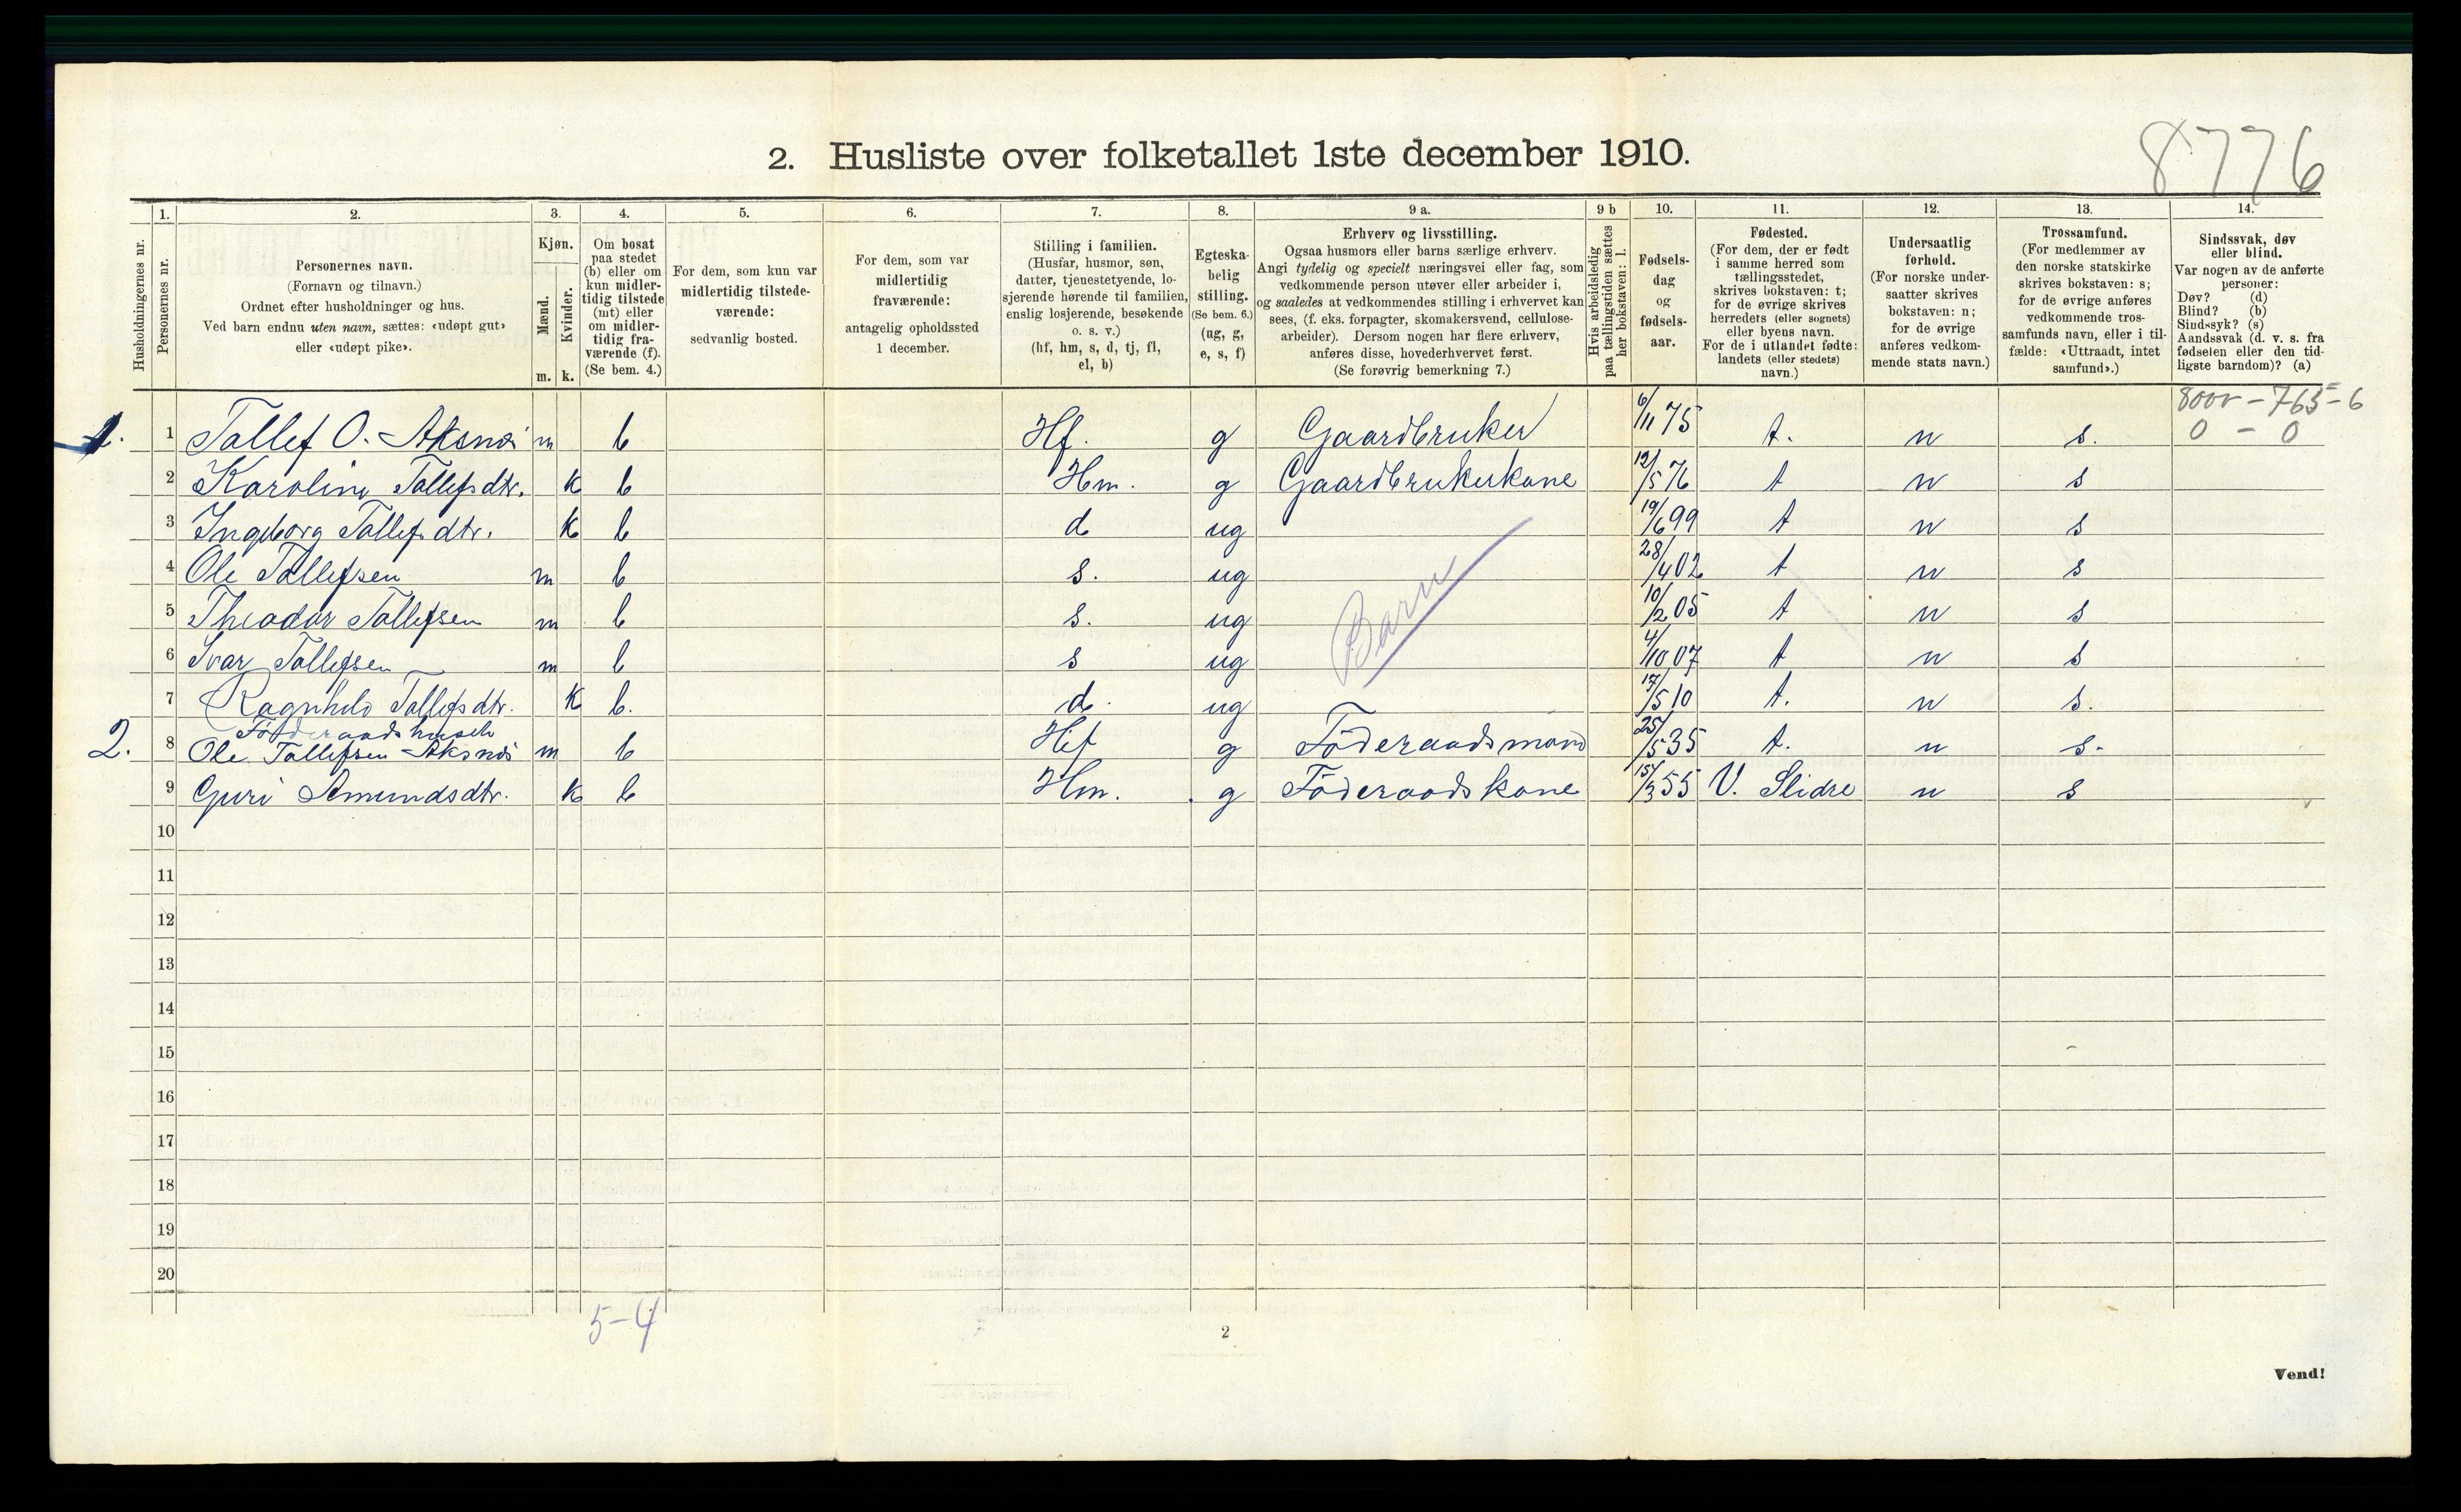 8776
2. Husliste over folketallet 1ste december 1910.
Husholdningernes nr.
1. Personernes nr.
2. Personernes navn. (Fornavn og tilnavn.) Ordnet efter husholdninger og hus. Ved barn endnu uten navn, sættes: «udøpt gut» eller «udøpt pike».
3. Kjøn. Mænd. m. Kvinder. k.
4. Om bosat paa stedet (b) eller om kun midlertidig tilstede (mt) eller om midlertidig fraværende (f). (Se bem. 4.)
5. For dem, som kun var midlertidig tilstedeværende: sedvanlig bosted.
6. For dem, som var midlertidig fraværende: antagelig opholdssted 1 december.
7. Stilling i familien. (Husfar, husmor, søn, datter, tjenestetyende, losjerende hørende til familien, enslig losjerende, besøkende o. s. v.) (hf, hm, s, d, tj, fl, el, b)
8. Egteskabelig stilling. (Se bem. 6.) (ug, g, e, s, f)
9 a. Erhverv og livsstilling. Ogsaa husmors eller barns særlige erhverv. Angi tydelig og specielt næringsvei eller fag, som vedkommende person utøver eller arbeider i, og saaledes at vedkommendes stilling i erhvervet kan sees, (f. eks. forpagter, skomakersvend, cellulosearbeider). Dersom nogen har flere erhverv, anføres disse, hovederhvervet først. (Se forøvrig bemerkning 7.)
9 b Hvis arbeidsledig paa tællingstiden sættes her bokstaven: l.
10. Fødselsdag og fødselsaar.
11. Fødested. (For dem, der er født i samme herred som tællingsstedet, skrives bokstaven: t; for de øvrige skrives herredets (eller sognets) eller byens navn. For de i utlandet fødte: landets (eller stedets) navn.)
12. Undersaatlig forhold. (For norske undersaatter skrives bokstaven: n; for de øvrige anføres vedkommende stats navn.)
13. Trossamfund. (For medlemmer av den norske statskirke skrives bokstaven: s; for de øvrige anføres vedkommende trossamfunds navn, eller i tilfælde: «Uttraadt, intet samfund».)
14. Sindssvak, døv eller blind. Var nogen av de anførte personer: Døv? (d) Blind? (b) Sindssyk? (s) Aandssvak (d. v. s. fra fødselen eller den tidligste barndom)? (a)
0 - 0
1. 1 Tollef O. Aksnæs m b Hf. g Gaardbruker 6/11 75 t. n s.
2 Karoline Tollefsdtr. k b Hm. g Gaardbrukerkone 12/5 76 t n s
3 Ingeborg Tollefsdtr. k b d ug 19/6 99 t n s
4 Ole Tollefsen m b s. ug 28/4 02 t n s
5 Theodor Tollefsen m b s. ug 10/2 05 t n s
Barn
6 Ivar Tollefsen m b s ug 4/10 07 t n s
7 Ragnhild Tollefsdtr. k b. d. ug 17/5 10 t. n s.
Föderaadshuset
2. 8 Ole Tollefsen Aksnæs m b Hf g Föderaadsmand 25/5 35 t. n s.
9 Guri Amundsdtr. k b Hm. g Föderaadskone 15/3 55 V. Slidre n s
10
11
12
13
14
15
16
17
18
19
20
5-4
2
Vend!